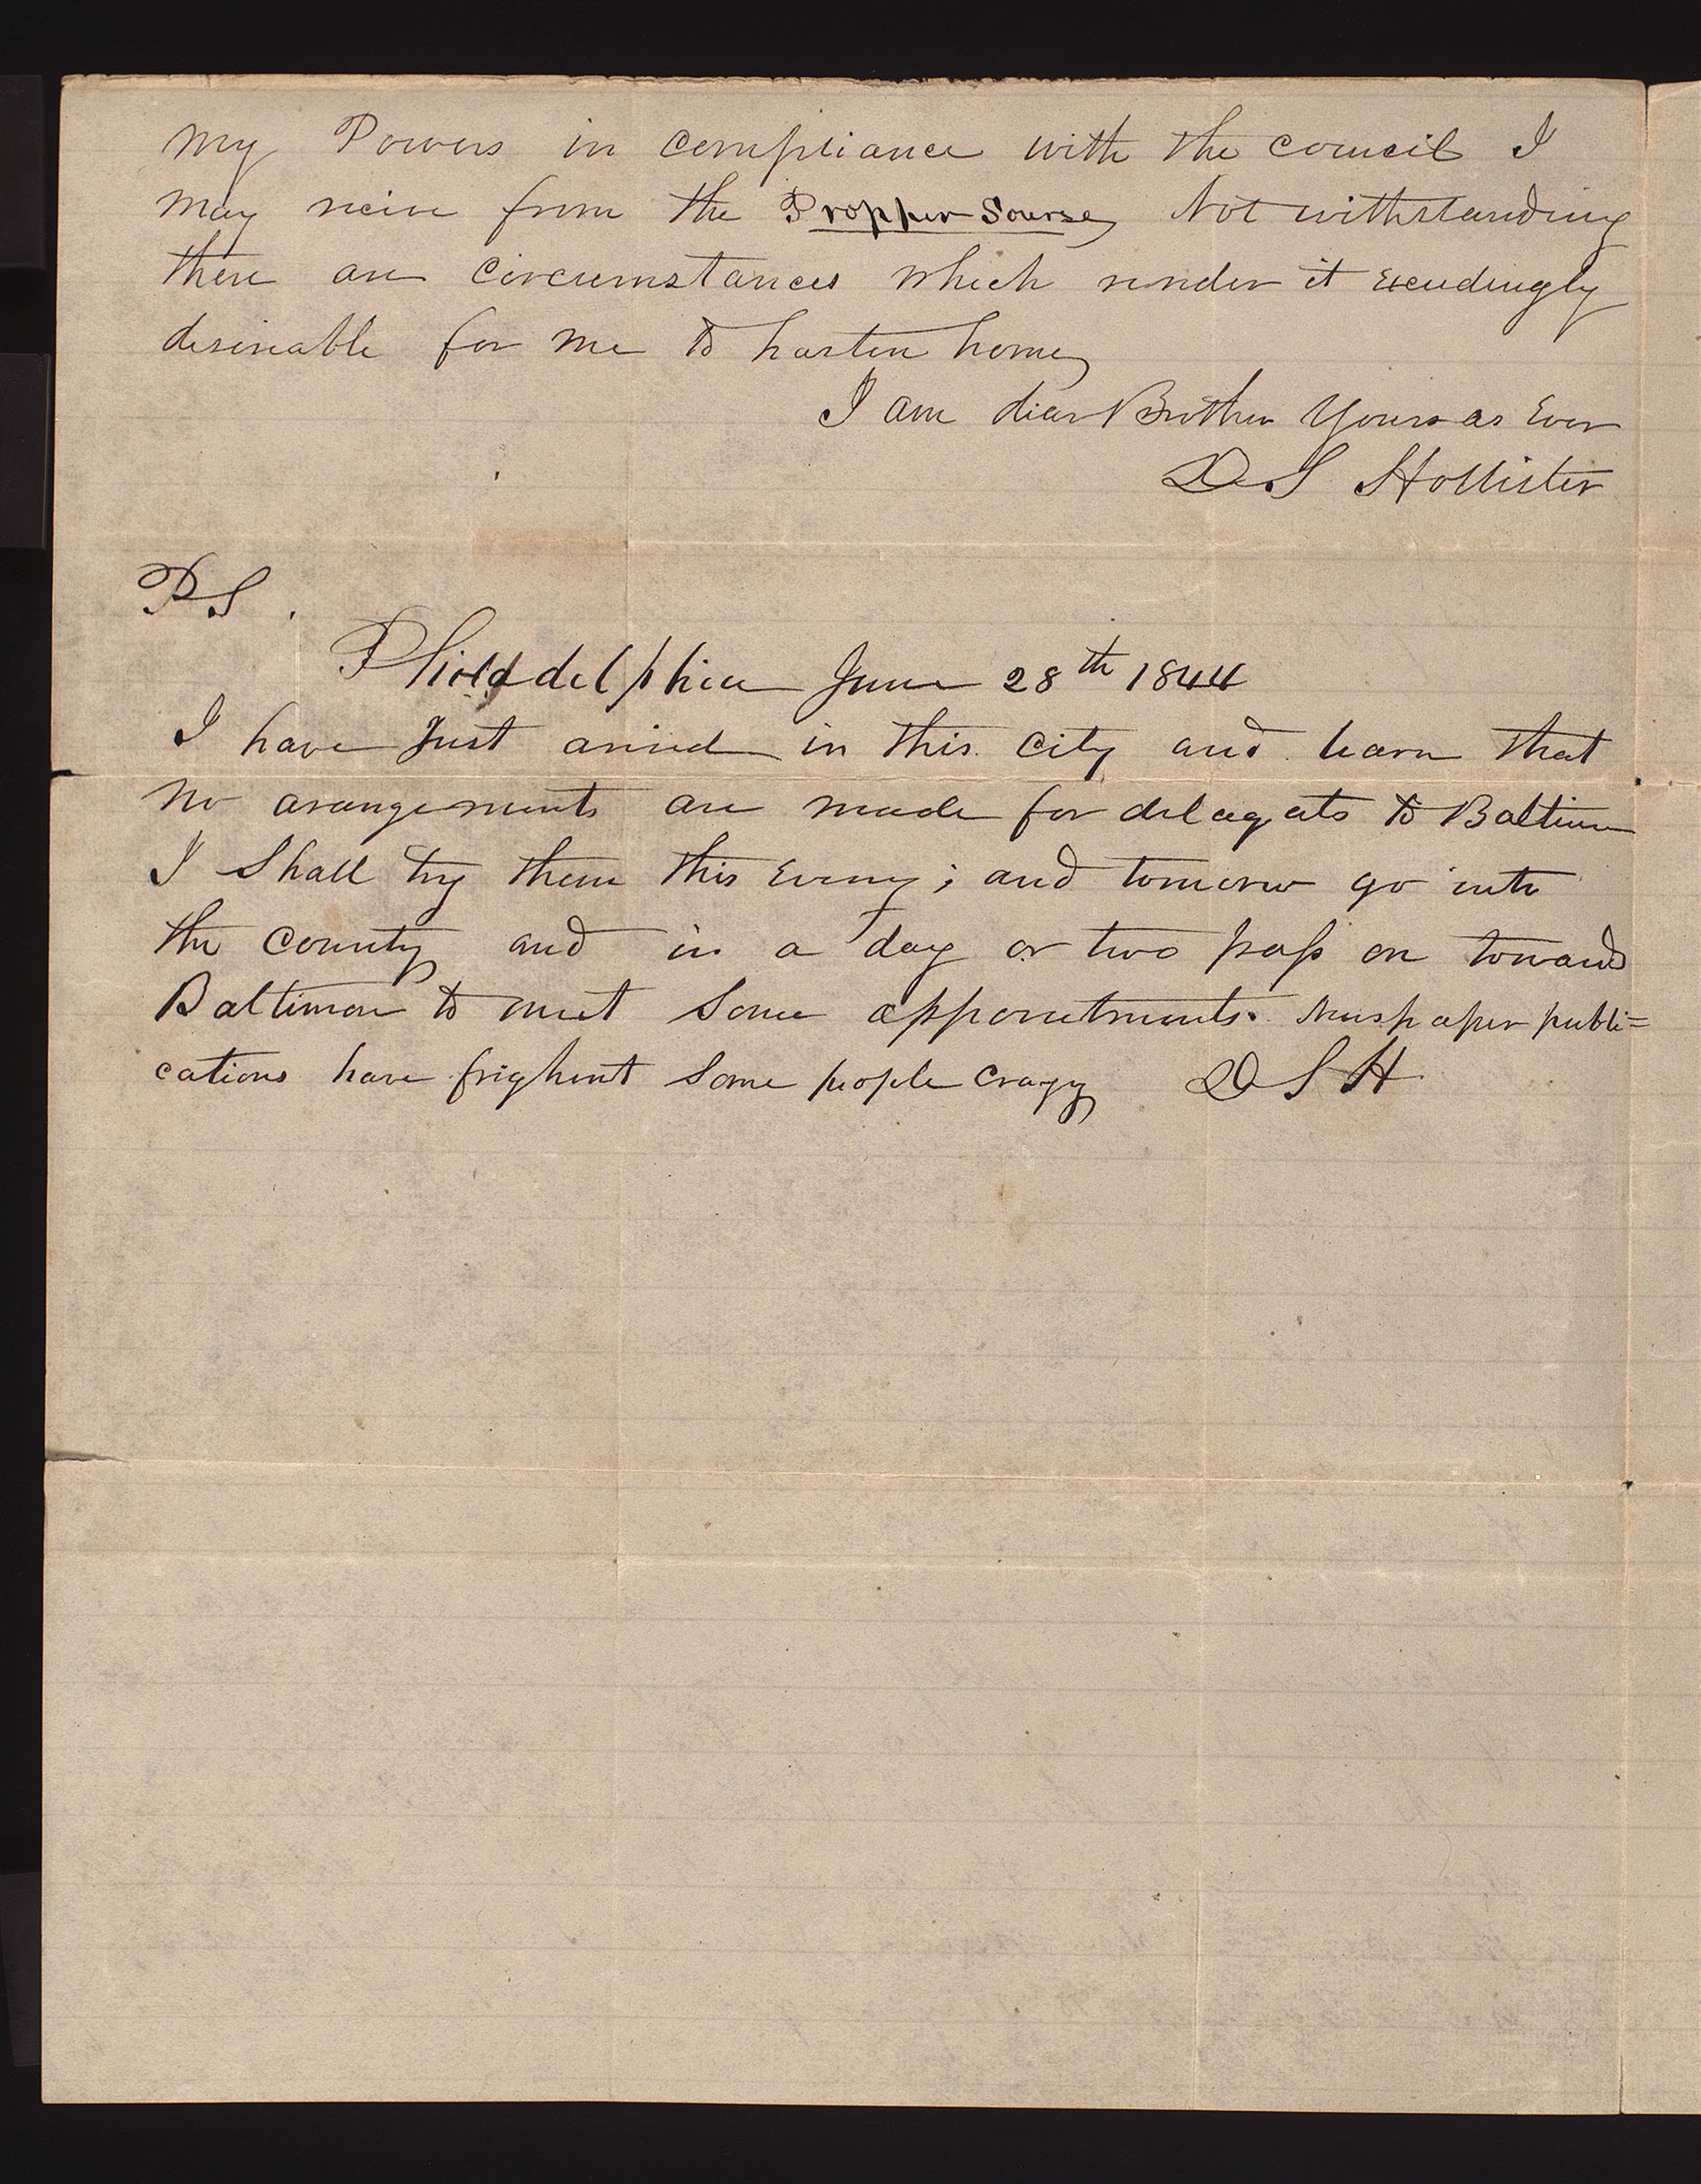 My Powers in compliance with the council I
may recive from the Propper Sourse, Not withstanding
there are circumstances which render it exceedingly
desireable for me to hasten home,
I am dear Brother Yours as Ever
D S Hollister
P S.
Philaddelphia June 28th 1844
I have Just arrived in this city and learn that
no arangements are made for delagats to Baltimore
I Shall try them this Eveng; and tomorrow go into
the County and in a day or two pass on towards
Baltimore to meet Some appointments. Newspaper publi=
cations have frighent Some people crazy D S H